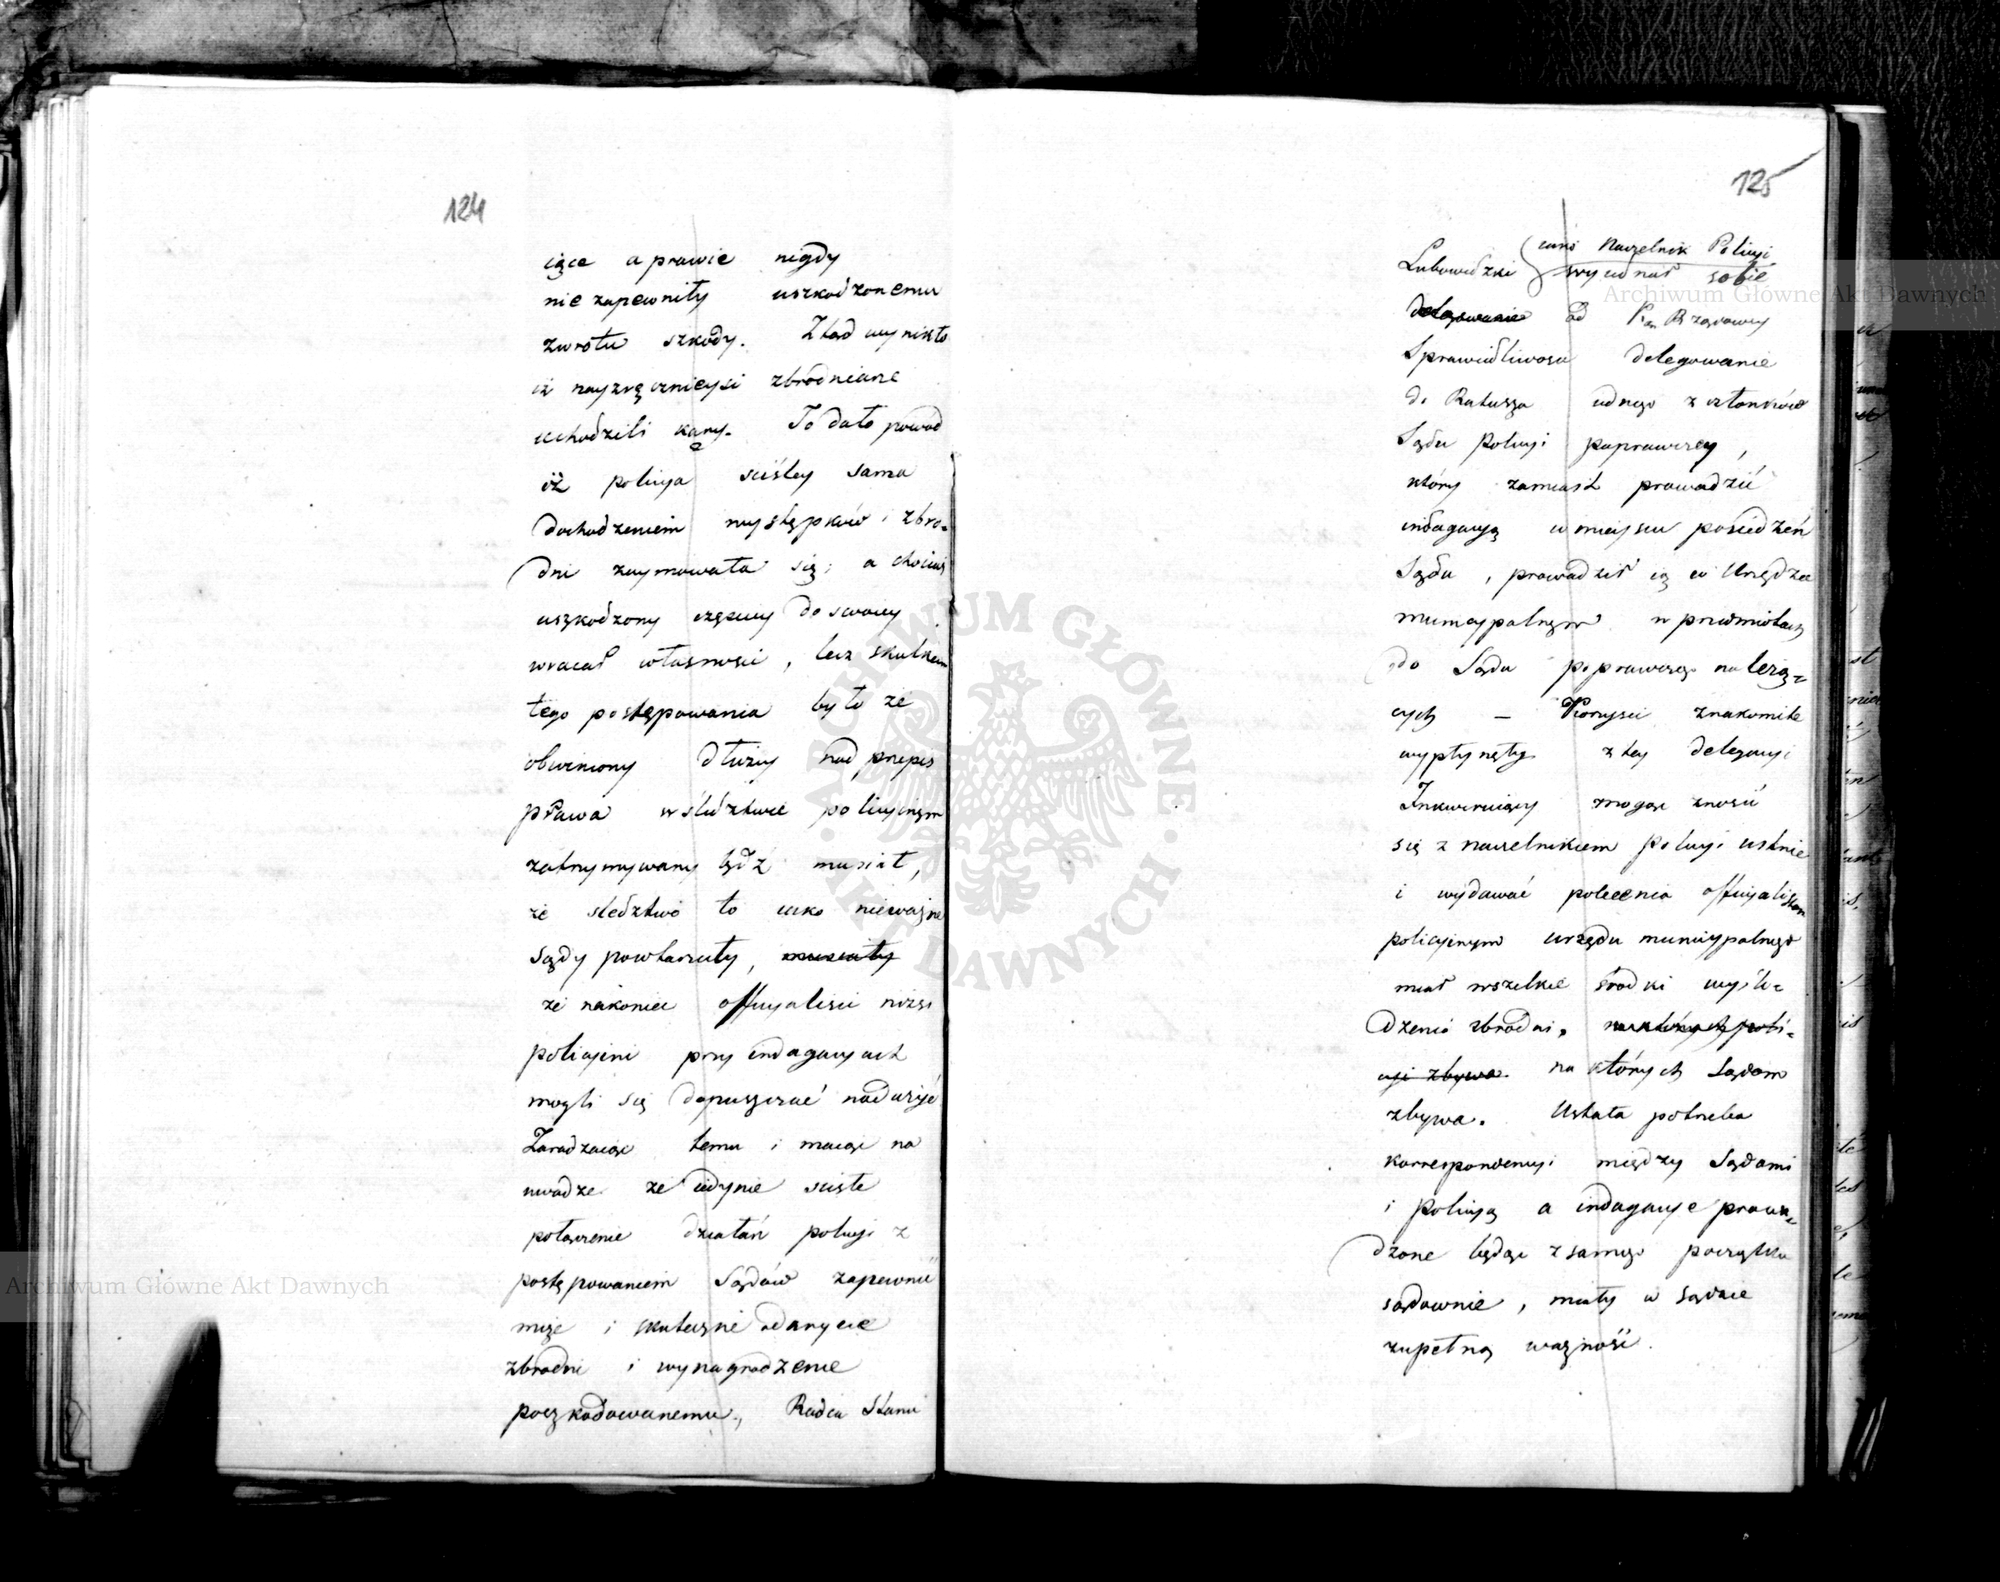 124
iące a prawie nigdy
nie zapewniły uszkodzonemu
zwrotu szkody. Ztąd wynikło
iż nayzręcznieysi zbrodniarze
uchodzili kary. To dało powód
iż policya ściśley sama
dochodzeniem występków i zbro=
dni zaymowała się; a chociaż
uszkodzony częściey do swoiey
wracał własności, lecz skutkiem
tego postępowania było że
obwiniony dłużey nad przepis
prawa w śledztwie policyinem
zatrzymywany bydź musiał,
że śledztwo to iako nieważne
Sądy powtarzały, musiały
że nakoniec officyaliści niżsi
policyini przy indagacyach
mogli się dopuszczać nadużyć
Zaradzaiąc temu i maiąc na
uwadze że iedynie ścisłe
połączenie działań policyi z
postępowaniem Sądów zapewnić
może i skuteczne odkrycie
zbrodni i wynagrodzenie
poszkodowanemu, Radca Stanu
125
iako Naczelnik Policyi
Lubowidzki wyiednał sobie
delegowanie od Kom Rządowey
Sprawiedliwości delegowanie
do Ratusza iednego z członków
Sądu Policyi poprawczey,
który zamiast prowadzić
indagacyą w mieyscu posiedzeń
Sądu, prowadził ią w Urzędzie
municypalnym w przedmiotach
do Sądu poprawczego należą=
cych — Korzyści znakomite
wypłynęły z tey delegacyi
Inkwiruiący mogąc znosić
się z naczelnikiem policyi ustnie
i wydawać polecenia officyalistom
policyinym urzędu municypalnego
miał wszelkie środki wyśle=
dzenia zbrodni, na których poli=
cyi zbywa. na których Sądom
zbywa. Ustała potrzeba
korrespondencyi między Sądami
i Policyą a indagacye prowa=
dzone będąc z samego początku
sądownie, miały w Sądzie
zupełną ważność.
Archiwum Główne Akt Dawnych
Archiwum Główne Akt Dawnych
ARCHIWUM GŁÓWNE
AKT DAWNYCH